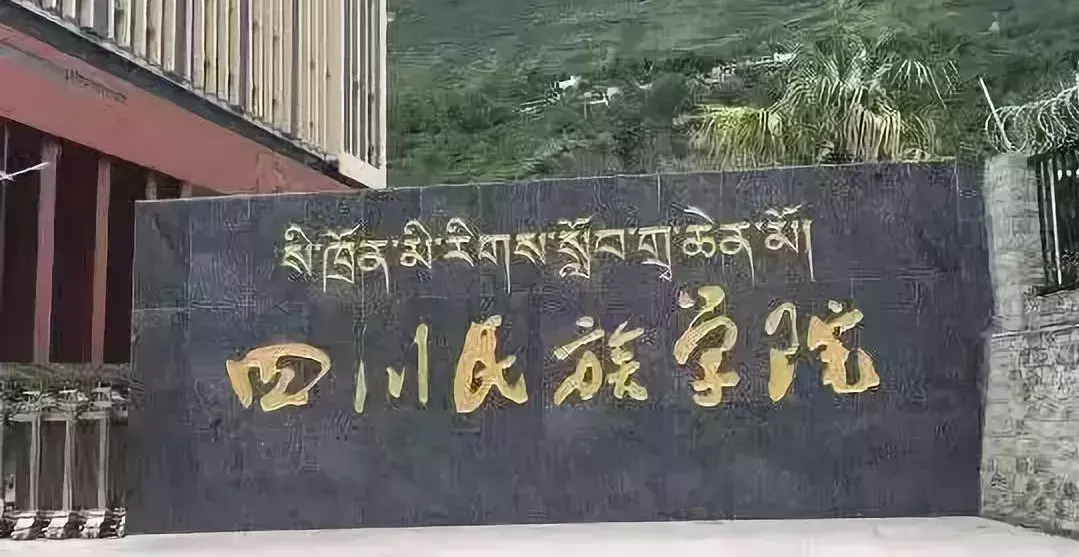 སི་ཁྲོན་མི་རིགས་སློབ་གྲྭ་ཆེན་མོ།
四川民族学院